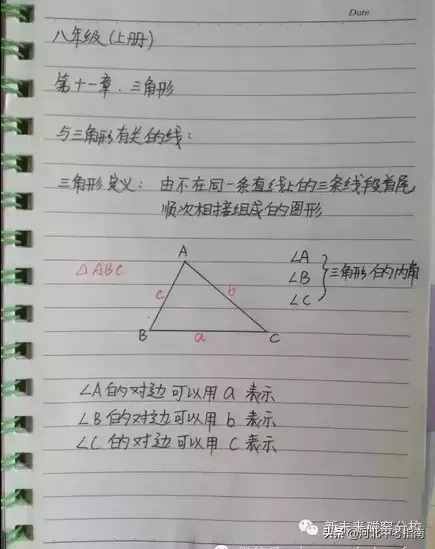 Date
八年级(上册)
第十一章.三角形
与三角形有关的线:
三角形定义: 由不在同一条直线上的三条线段首尾
顺次相接组成的图形
△ABC
A
c
b
B
a
C
∠A
∠B
∠C
三角形的内角
∠A的对边可以用a表示
∠B的对边可以用b表示
∠C的对边可以用c表示
新未来磁窑分校
头条@河北中考指南